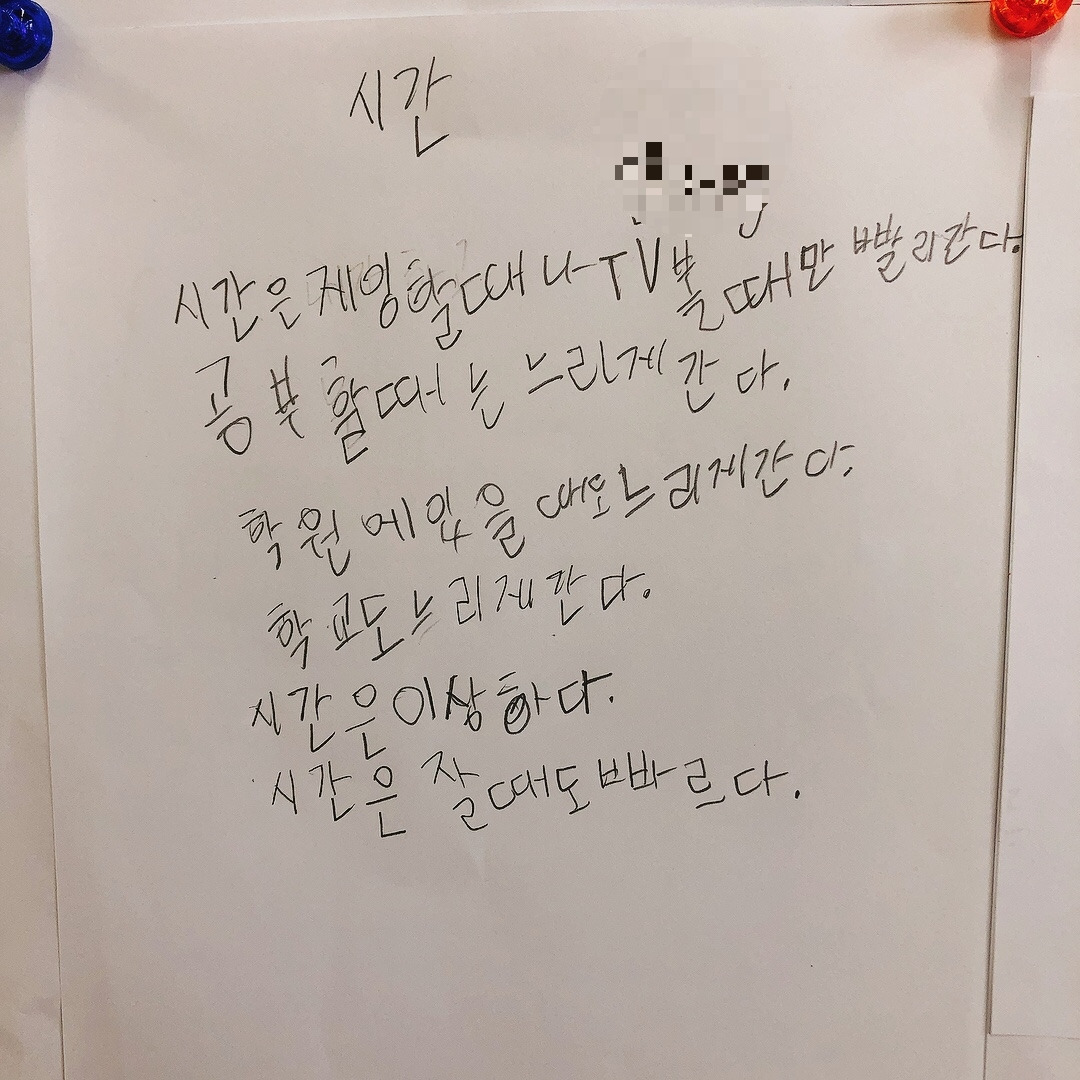 시간
시간은 게임할때나 TV볼때만 빨리간다.
공부할때는 느리게간다.
학원에있을때도느리게간다.
학교도느리게간다.
시간은이상하다.
시간은 잘때도빠르다.